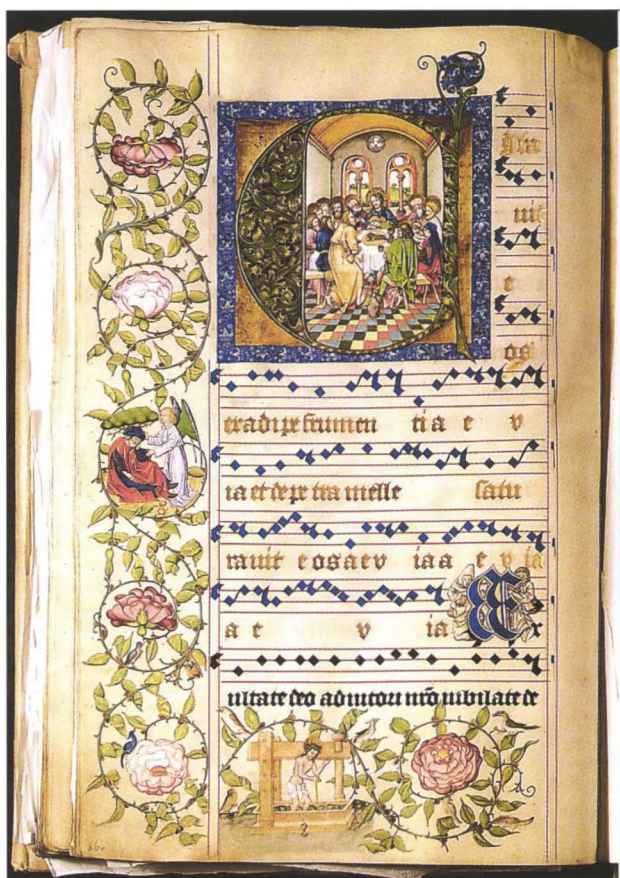 C
iba
uit
e
os
exadipe frumen ti a e v
ia et de pe tra melle satu
rauit eos aev ia a e v ia
a e v ia Ex
ultate deo adiutori nr̄o iubilate de
86v